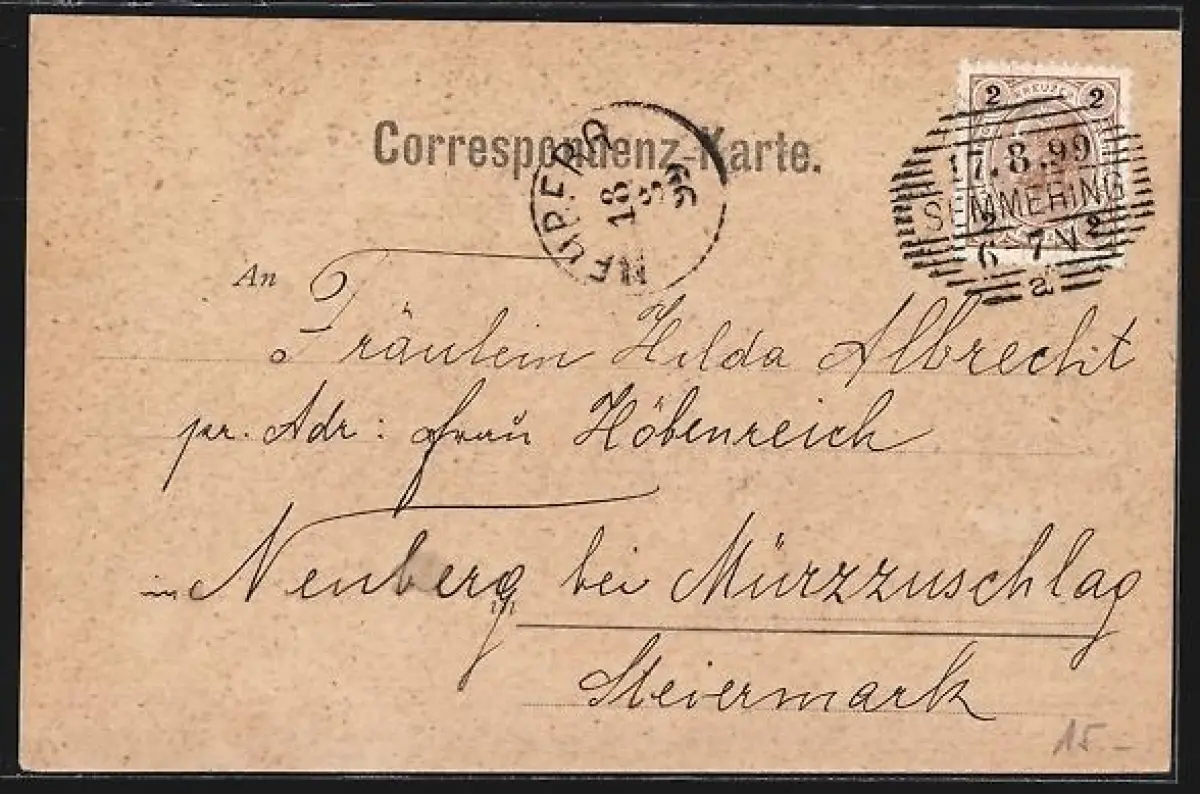 Correspondenz-Karte.
2 KREUZER 2
17.8.99
SEMMERING
2 2
6-7 N
a
NEUBERG
18
8
99
An Fräulein Hilda Albrecht
pr. Adr: Frau Höbenreich
in Neuberg bei Mürzzuschlag
Steiermark
15-